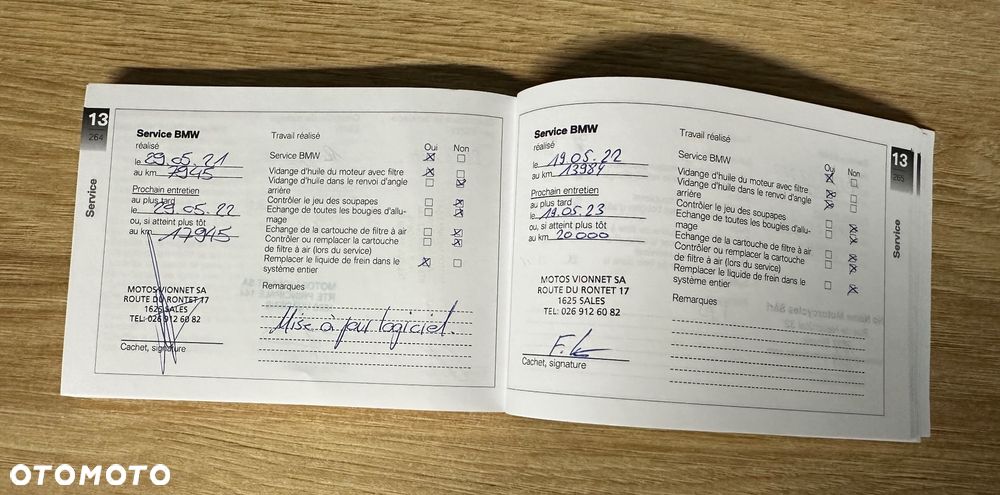 13
264
Service
Service BMW
réalisé
le 29.05.21
au km 7945
Prochain entretien
au plus tard
le 29.05.22
ou, si atteint plus tôt
au km 17945
MOTOS VIONNET SA
ROUTE DU RONTET 17
1625 SALES
TEL: 026 912 60 82
Cachet, signature
Travail réalisé
Oui Non
Service BMW
Vidange d'huile du moteur avec filtre
Vidange d'huile dans le renvoi d'angle
arrière
Contrôler le jeu des soupapes
Echange de toutes les bougies d'allu-
mage
Echange de la cartouche de filtre à air
Contrôler ou remplacer la cartouche
de filtre à air (lors du service)
Remplacer le liquide de frein dans le
système entier
Remarques
Mise à jour logiciel.
Service BMW
réalisé
le 19.05.22
au km 13984
Prochain entretien
au plus tard
le 19.05.23
ou, si atteint plus tôt
au km 20000
MOTOS VIONNET SA
ROUTE DU RONTET 17
1625 SALES
TEL: 026 912 60 82
Cachet, signature
Travail réalisé
Oui Non
Service BMW
Vidange d'huile du moteur avec filtre
Vidange d'huile dans le renvoi d'angle
arrière
Contrôler le jeu des soupapes
Echange de toutes les bougies d'allu-
mage
Echange de la cartouche de filtre à air
Contrôler ou remplacer la cartouche
de filtre à air (lors du service)
Remplacer le liquide de frein dans le
système entier
Remarques
13
265
Service
OTOMOTO